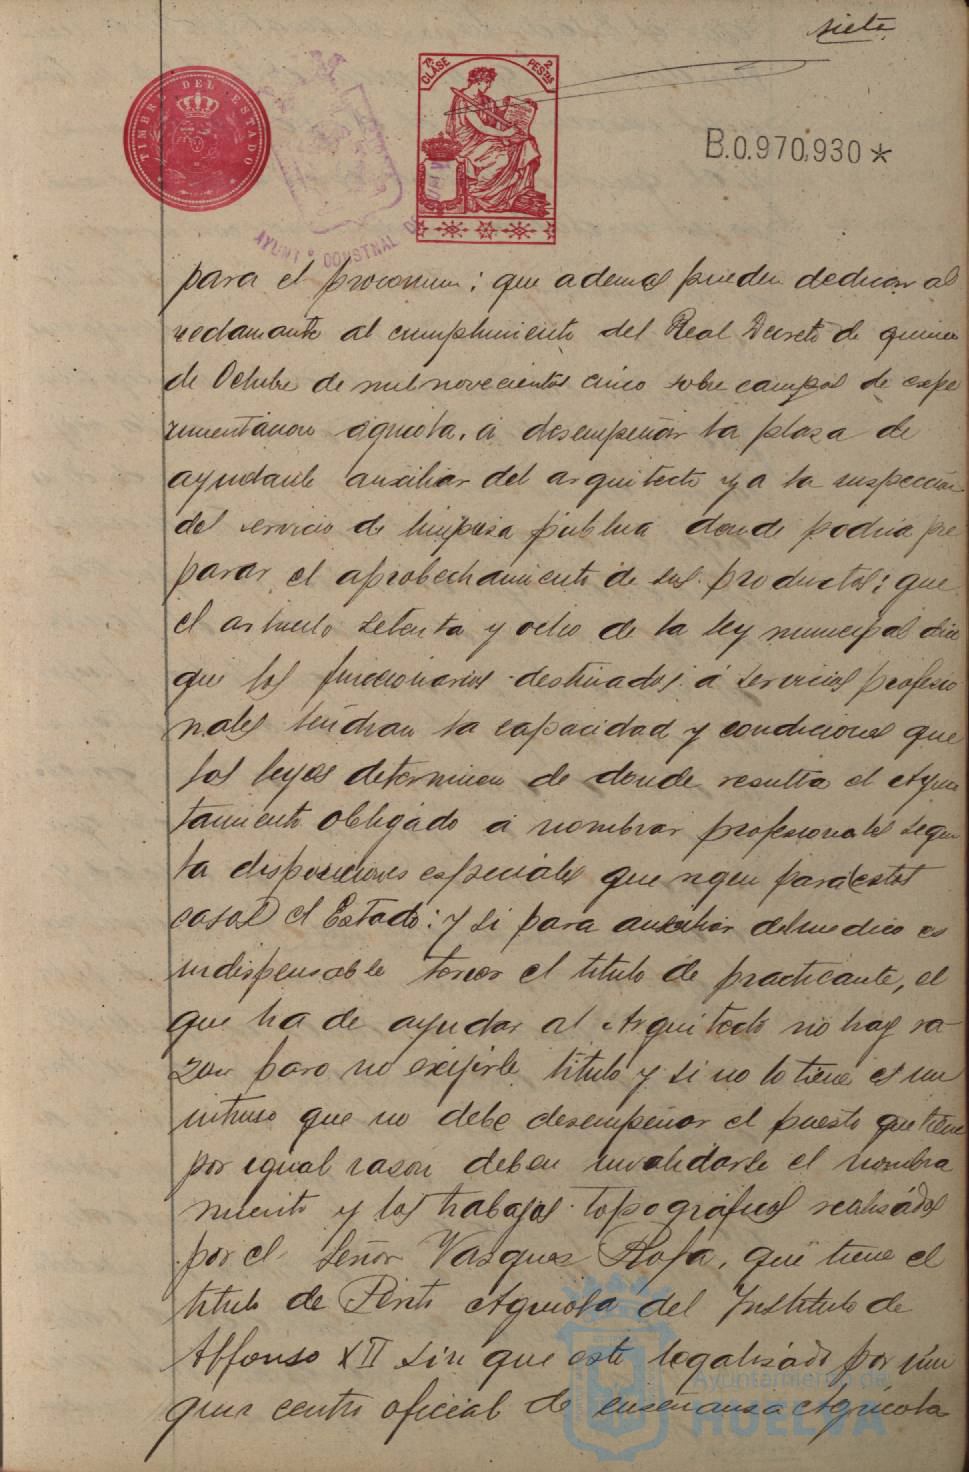 siete
TIMBRE DEL ESTADO
7ª CLASE 2 PESTAS
B.0.970,930*
AYUNTº CONSTNAL DE
para el procomun; que ademas pueden dedicar al
reclamante al cumplimiento del Real Decreto de quince
de Octubre de mil novecientos cinco sobre campos de expe
rimentacion agricola, á desempeñar la plaza de
ayudante auxiliar del arquitecto y a la inspeccion
del servicio de limpieza pública donde podria pre
parar el aprobechamiento de sus productos; que
el articulo setenta y ocho de la ley municipal dice
que los funcionarios destinados á servicios profesio
nales tendran la capacidad y condiciones que
las leyes determinen de donde resulta el Ayun
tamiento obligado á nombrar profesionales segun
la disposiciones especiales que rigen para estos
casos el Estado: Y si para auxiliar del medico es
indispensable tener el titulo de practicante, el
que ha de ayudar al Arquitecto no hay ra-
zon para no exijirle titulo y si no lo tiene es un
intruso que no debe desempeñar el puesto que tiene
por igual rason deben invalidarse el nombra
miento y los trabajos topográficos realizados
por el Señor Vasquez Rofa, que tiene el
titulo de Perito Agricola del Instituto de
Alfonso XII sin que este legalizado por nin
gun centro oficial de enseñanza Agricola
Ayuntamiento de
HUELVA